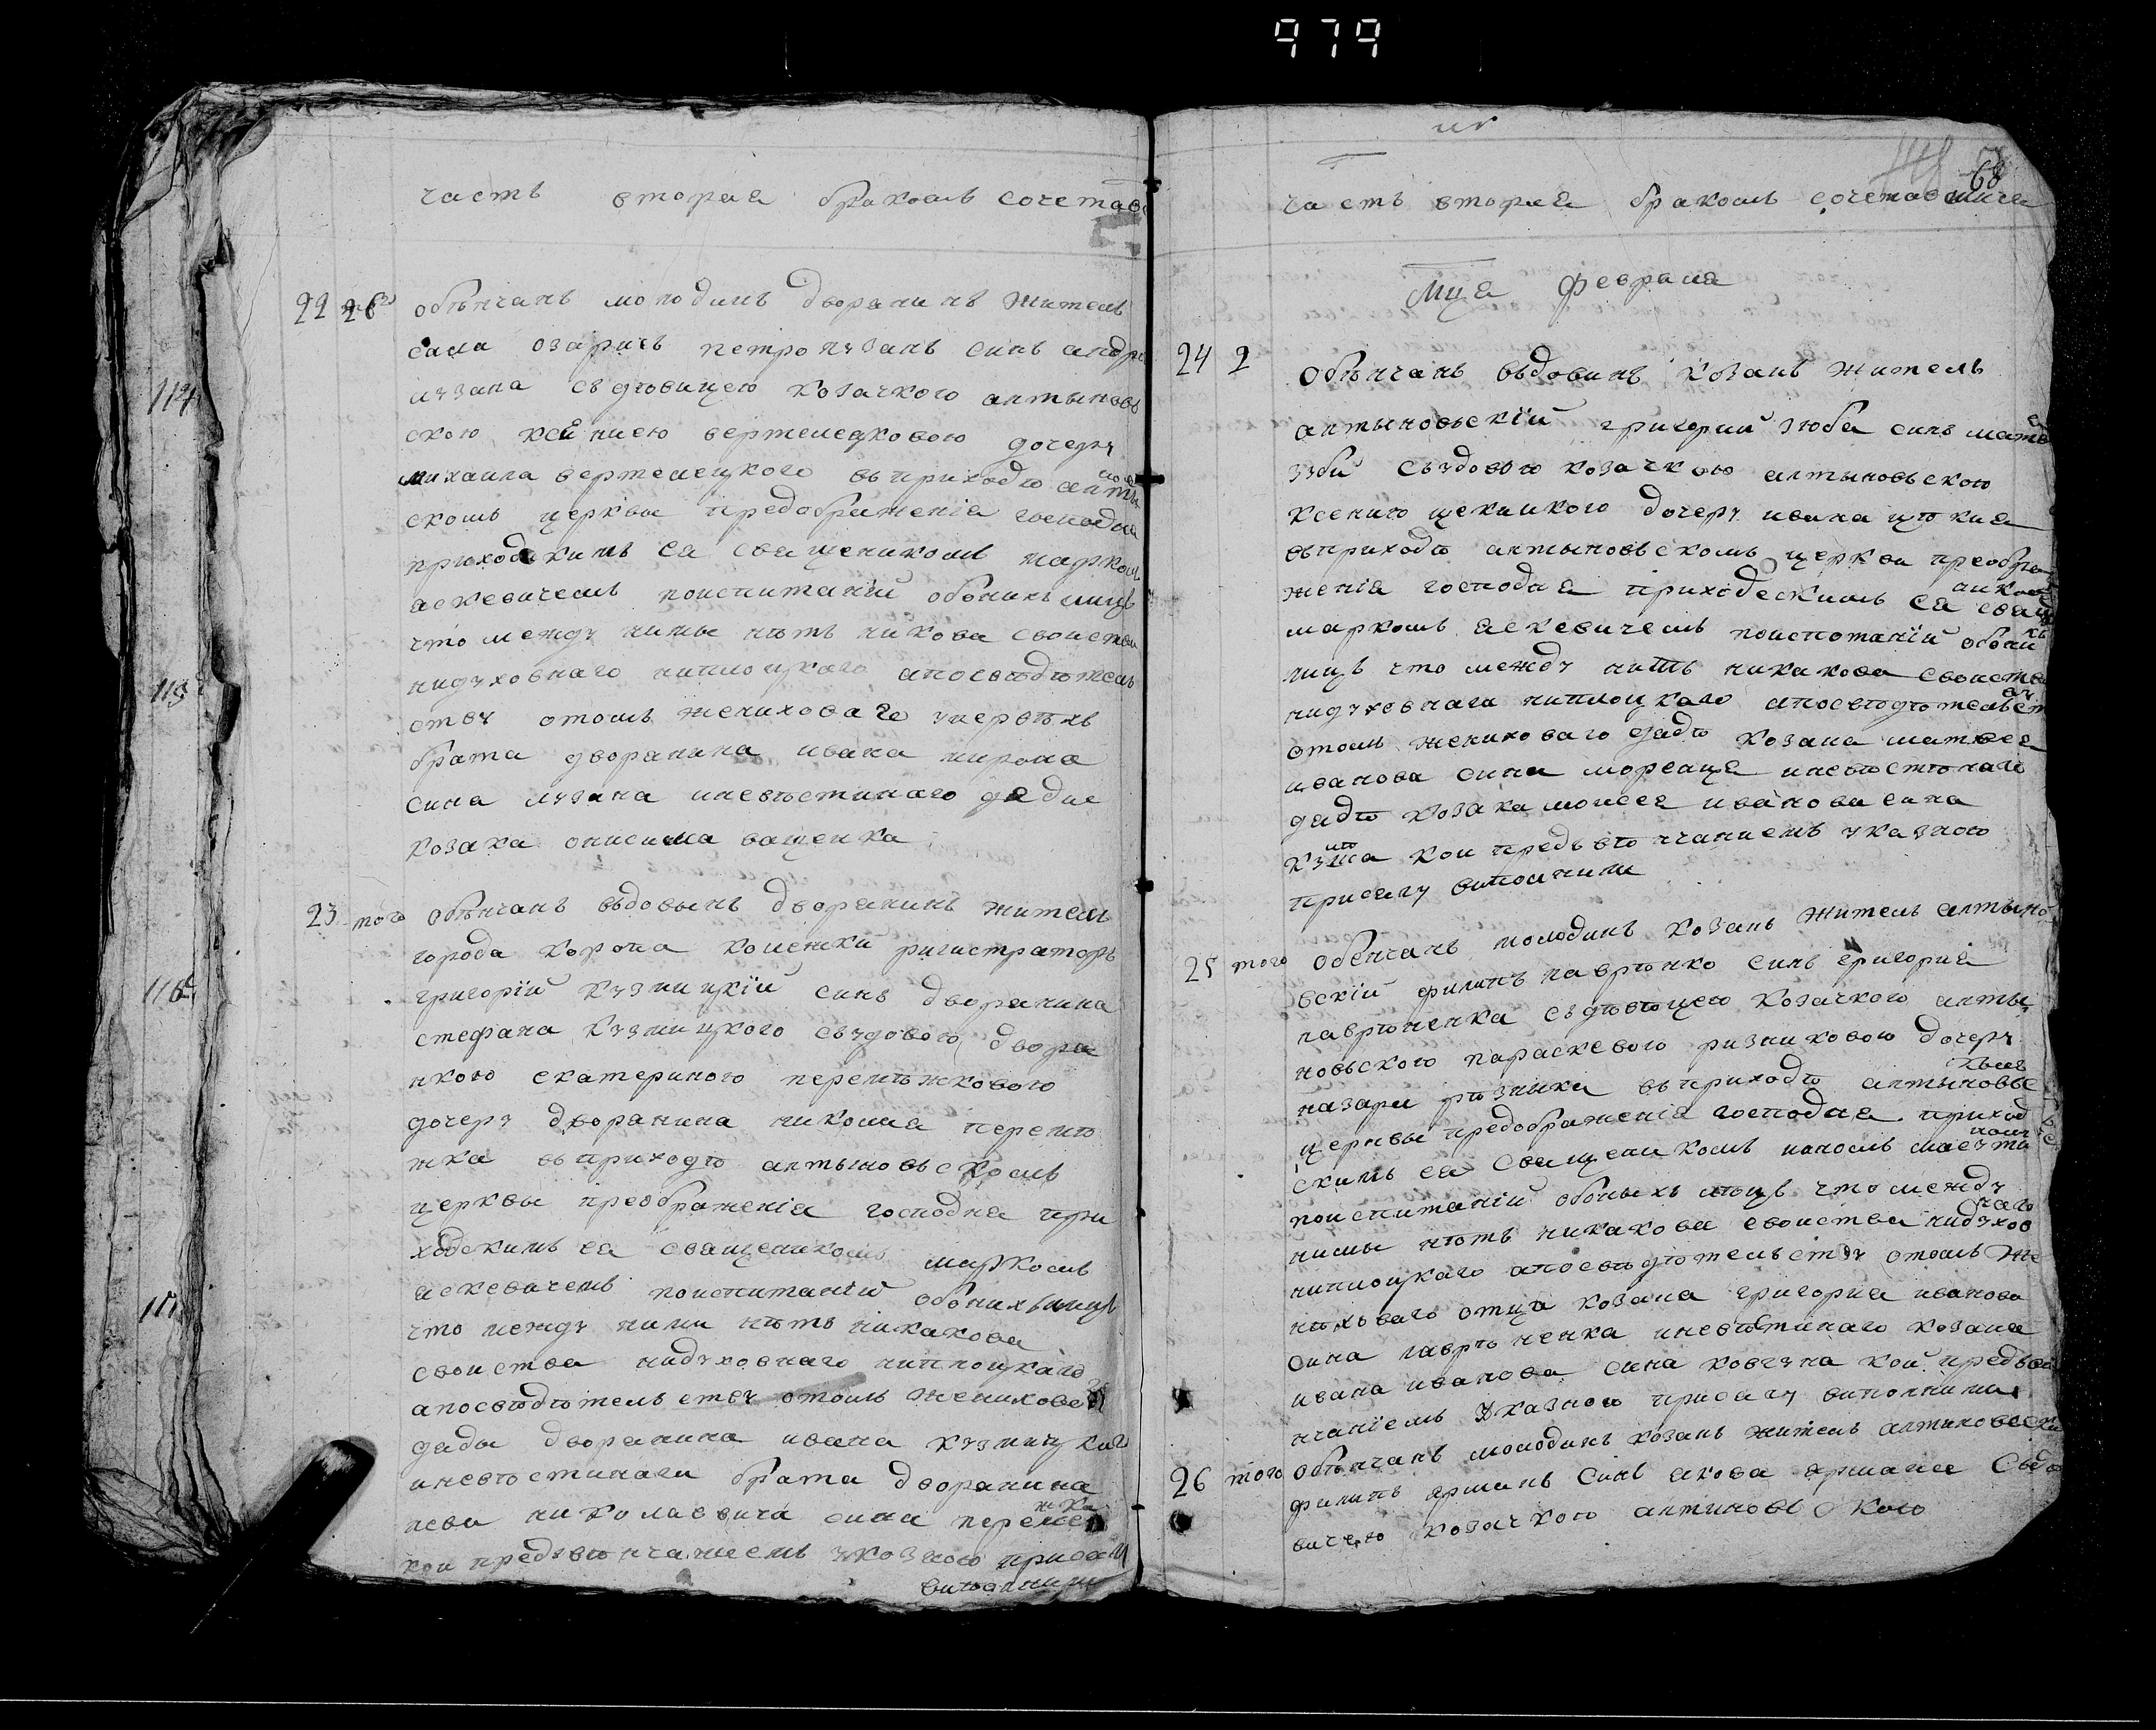 979
часть вторая бракомъ сочетав
22 26 обвѣнчанъ молодикъ дворанинъ житель
села озаричъ петро лузанъ синъ андре
лузана съ дѣвицею козачкою алтыновъ
скою ксениею вертелецковою дочерь
михаила вертелецкого въ приходѣ алты
скомъ церквы предображения господня
приходскимъ ея сващеникомъ маркомъ
яскевичемъ поиспитаніи обоихъ лицъ
что между нимы нѣтъ никова своиства
нидуховнаго ниплоцкаго апосвѣдѣтель
ству отомъ жениховаго
брата дворанина ивана мирона
сина лузана иневѣстинаго дяди
козака онисима ващенка
23 того обвѣнчанъ вьдовьнъ дворанинъ житель
города коропа колежки ригистраторъ
григорій кузмицкій синъ дворанина
стефана кузмицкого съудовою двора
нкою екатериною перемѣжковою
дочеру дворанина никола перемѣ
жка въ приходѣ алтыновьскомъ
церквы преображеніа господна при
ходскимъ еа сващеникомъ маркомъ
яскевичемъ поиспитаніи обоихъ лицъ
что между ними нѣтъ никакова
своиства нидуховнаго ниплоцкаго
апосвѣдѣтельству отомъ женихова
дяды дворанина ивана кузмицкаг
иневѣстинаги брата дворанина
лева николаевича сина перемежка
кои предъвѣнчаниемъ указною присагу
виполнили
68
часть вторая бракомъ сочетавшися
Мца Февраля
24 2 Обвѣнчанъ вьдовинъ козакъ житель
алтыновьскій григорий зюба синъ матв
зуби съудовою козачкою алтыновьскою
ксению цекицкого дочеру ивана
въприходѣ алтыновьскомъ церкви преобра
женіа господна приходскимъ еа сващ
никомъ
маркомъ яскевичемъ поиспотаніи обои
хъ
лицъ что между нитъ никакова своиства
нидуховнаги ниплоцкаго апосвѣдѣтельст
ву
отомъ жениховаго дядѣ козака матвея
иванова сина мореаца иневѣстѣнаго
дядѣ козака моисея иванова сина
кои предъвѣнчаниемъ указною
присягу виполнили
25 того Обенчанъ молодикъ козакъ житель алтыно
вскій филипъ лаврѣнко синъ григориа
лаврѣненка съдѣвѣцею козачкою алты
новьскою параскевою ризниковою дочеру
назара рѣзника въприходѣ алтыновьс
комъ
церквы предображеніа господна приход
скимъ еа сващеникомъ
поиспитаніи обоихъ лицъ что между
нимы нѣтъ никакова своиства нидухов
наго
ниплоцкаго апосвѣдѣтельству отомъ же
нѣховаго отца козака григориа иванова
сина лаврѣненка иневѣстинаго козака
ивана иванова сина ковгуна кои предъвѣ
нчаніемъ указною присагу виполнили
26 того Обвѣнчанъ молодикъ козакъ житель алтиновски
филипъ ярмакъ синъ якова ярмака съдѣ
вицею козачкою алтиновскою
114
115
116
117